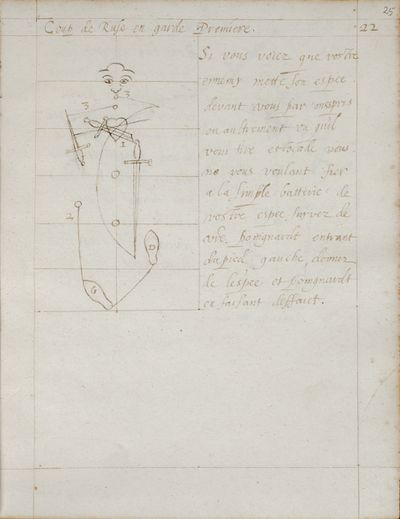 25
Coup de Ruse en garde Premiere.
22
Si vous voiez que vostre
ennemy mette son espee
devant vous par mespris
ou aultrement ou quil
vous tire estocade vous
ne vous voulant fier
a la simple batterie de
vostre espee survez de
vostre poingnardt entrant
du pied gauche donnez
de lespee et poingnardt
en faisant deffaict.
3
3
1
2
D
G